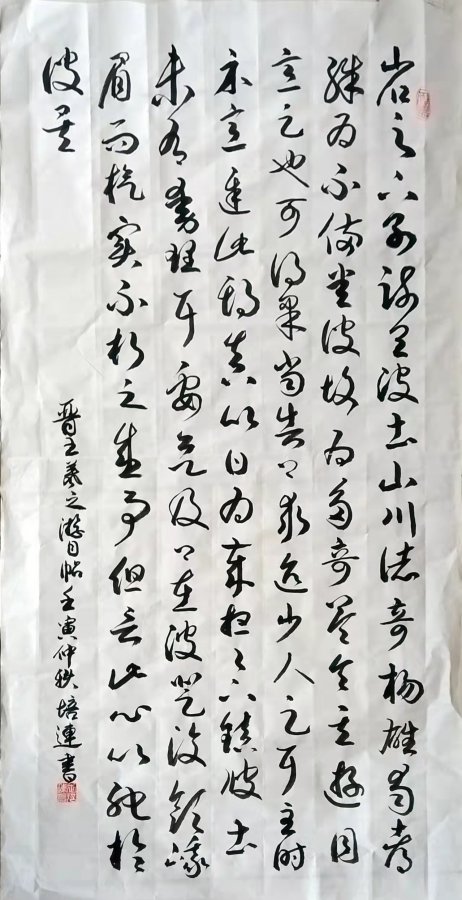 省足下別疏具彼土山川諸奇楊雄蜀都
殊為不備悉彼故為多奇益令其遊目
意足也可得果當告卿求迎少人足耳至時
示意遲此期真以日為歲想足下鎮彼土
未有動理耳要欲及卿在彼登汶嶺峨
眉而旋實不朽之盛事但言此心以馳於
彼矣
晉王羲之遊目帖壬寅仲秋培連書